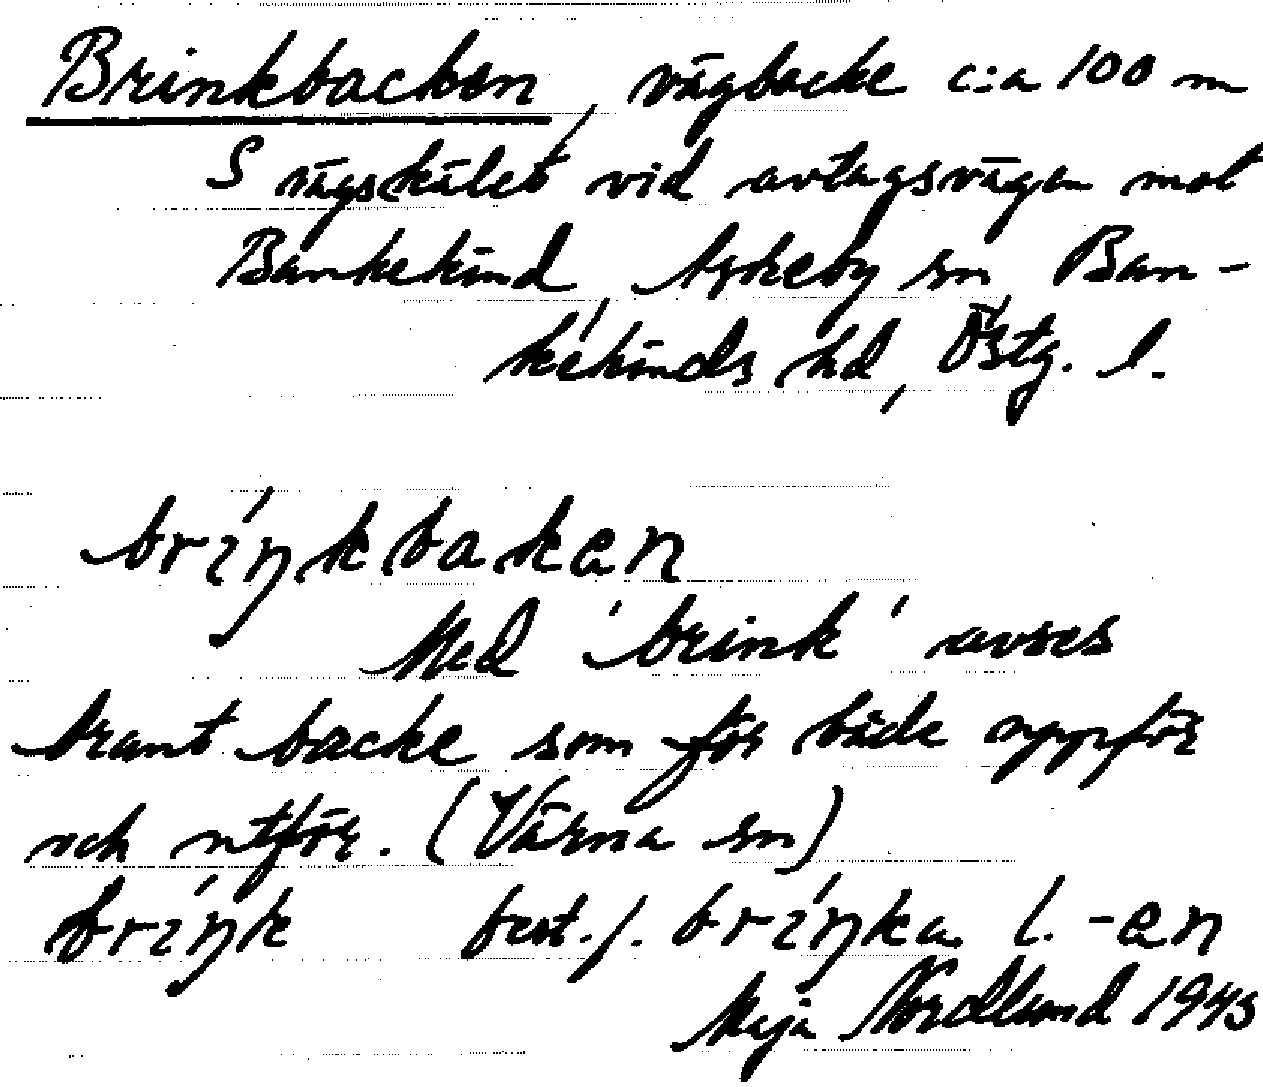 Brinkbacken, vägbacke c:a 100 m
S vägskälet vid avtagsvägen mot
Bankekind, Askeby sn Ban-
kekinds hd, Östg. l.
bríŋkbakan
Med 'brink' avses
brant backe som för både uppför
och utför. (Värna sn)
bríŋk best. f. bríŋka l. -en
Maja Nordlund 1945